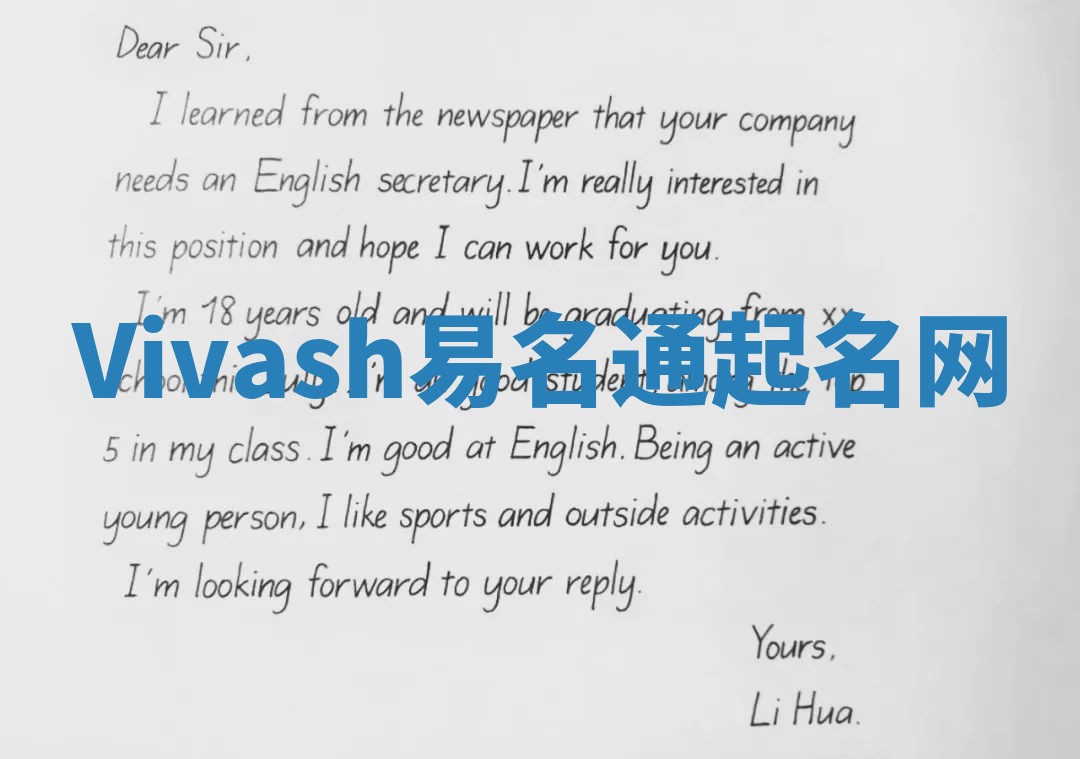 Dear Sir,
I learned from the newspaper that your company
needs an English secretary. I'm really interested in
this position and hope I can work for you.
I'm 18 years old and will be graduating from xx
Vivash易名通起名网
school this July. I'm a good student, among the top
5 in my class. I'm good at English. Being an active
young person, I like sports and outside activities.
I'm looking forward to your reply.
Yours,
Li Hua.